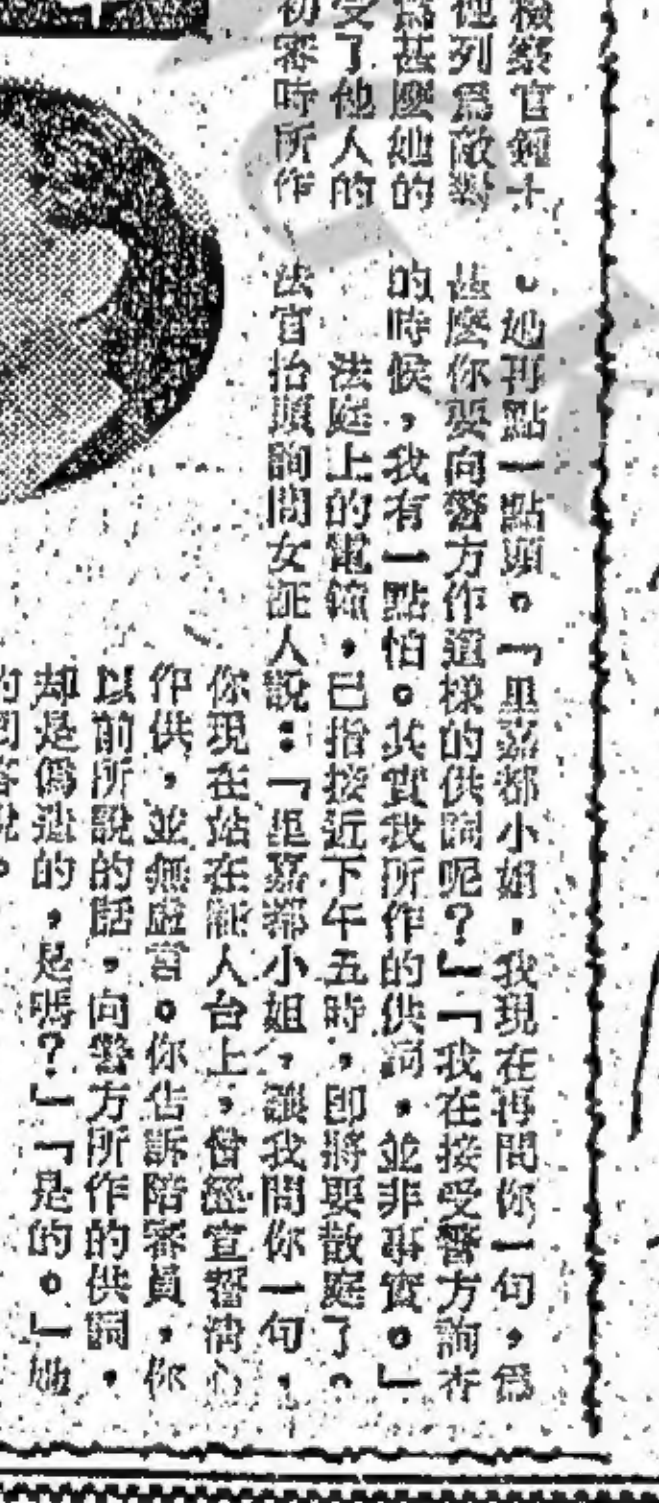 檢察官鍾士
他列爲敵對
爲甚麼她的
受了他人的
初審時所作
。她再點一點頭。「里嘉都小姐,我現在再問你一句,爲
甚麼你要向警方作這樣的供詞呢?」「我在接受警方詢查
的時候,我有一點怕。其實我所作的供詞,並非事實。」
法庭上的電鐘,已指接近下午五時,即將要散庭了。
法官抬頭詢問女証人說:「里嘉都小姐,讓我問你一句,
你現在站在証人台上,曾經宣誓清心
作供,並無虛言。你告訴陪審員,你
以前所說的話,向警方所作的供詞,
却是僞造的,是嗎?」「是的。」她